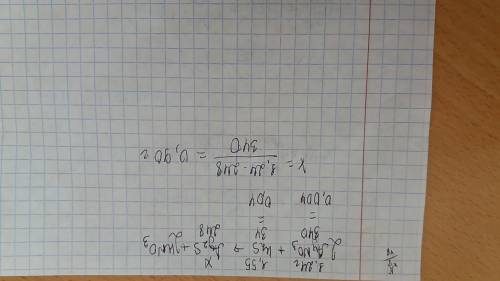 1,24г 1,55 X
2AgNO3 + H2S → Ag2S + 2HNO3
340 34 248
= =
0,004 0,04
X = 1,24·248/340 = 0,90 г